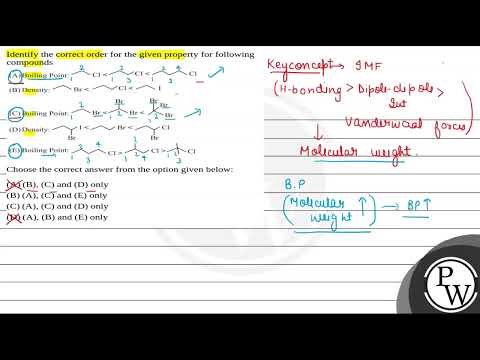 Identify the correct order for the given property for following
compounds
(A) Boiling Point: 1 2 Cl < 1 2 3 Cl < 1 2 3 4 Cl
(B) Density: Br < Cl < I
(C) Boiling Point: 1 2 Br < 1 2 Br Br < 1 2 Br Br Br
(D) Density: I < Br < Cl
(E) Boiling Point: 1 2 3 4 Cl > 1 2 3 4 Cl > Cl
Choose the correct answer from the option given below:
(A) (B), (C) and (D) only
(B) (A), (C) and (E) only
(C) (A), (C) and (D) only
(D) (A), (B) and (E) only
Keyconcept → IMF
(H-bonding > Dipole-dipole >
Int
Vanderwaal forces)
Molicular weight.
B.P
(Molicular weight ↑) → BP↑
PW